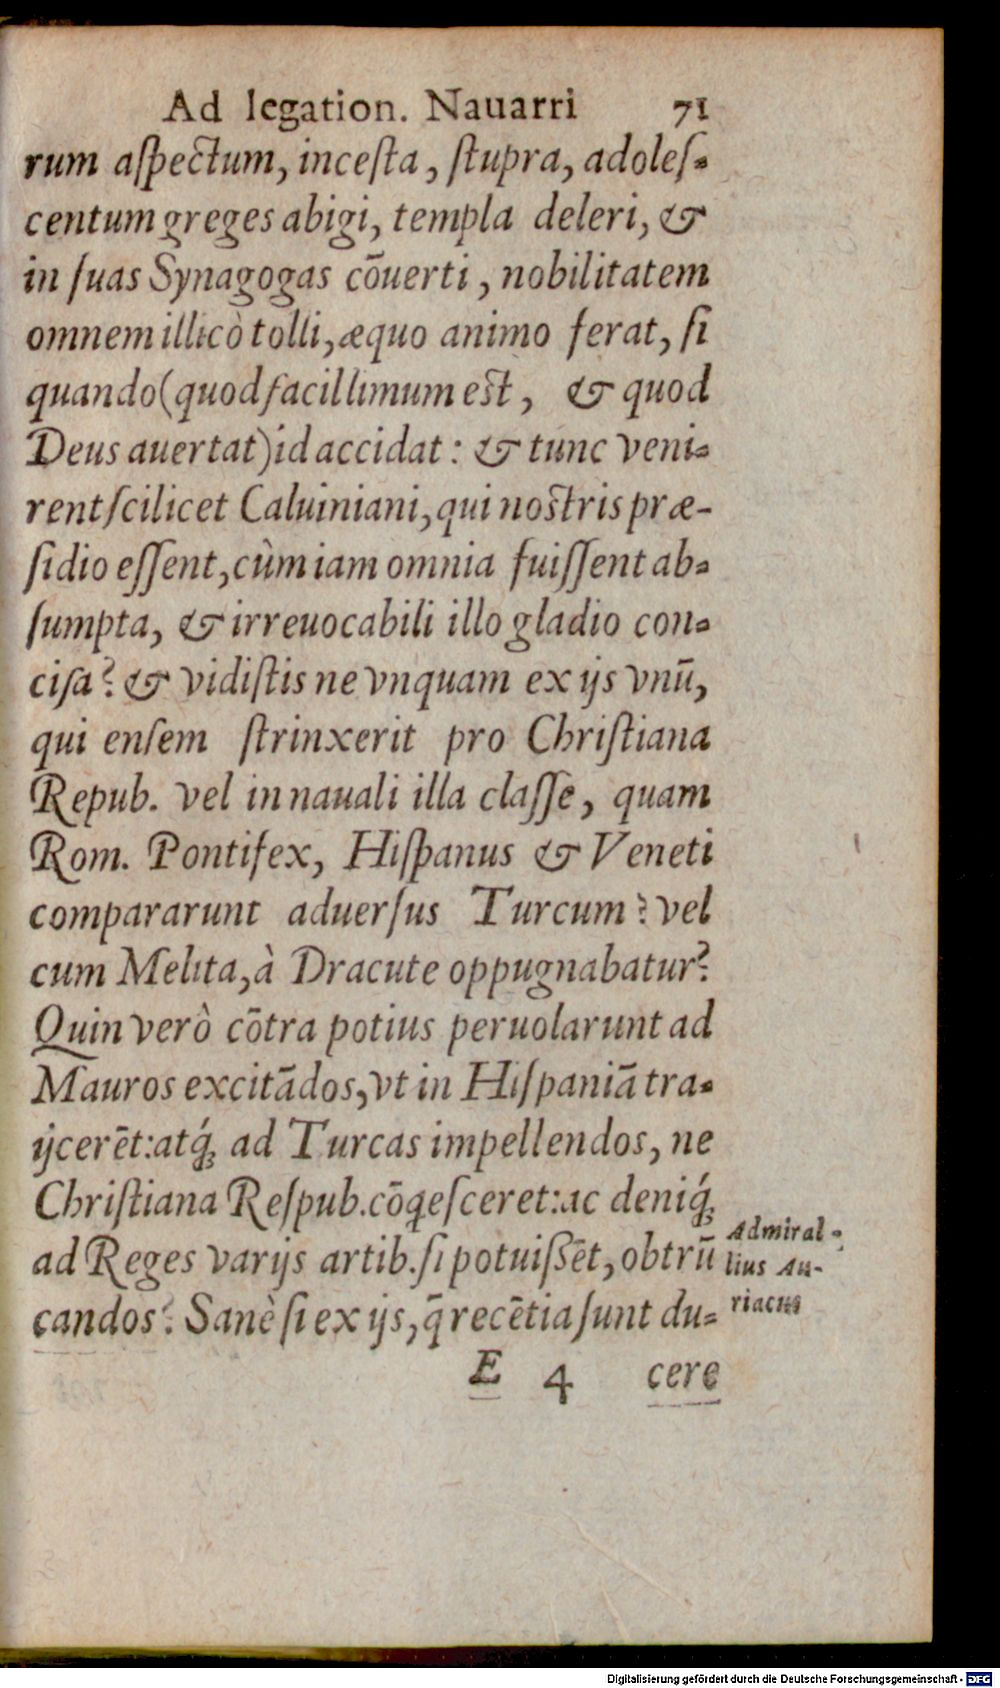 Ad legation. Nauarri 71
rum aſpectum, inceſta, ſtupra, adoleſ-
centum greges abigi, templa deleri, &
in ſuas Synagogas cōuerti, nobilitatem
omnem illicò tolli, æquo animo ferat, ſi
quando (quod facillimum eſt, & quod
Deus auertat) id accidat: & tunc veni-
rent ſcilicet Caluiniani, qui noſtris præ-
ſidio eſſent, cùm iam omnia fuiſſent ab-
ſumpta, & irreuocabili illo gladio con-
ciſa? & vidiſtis ne vnquam ex ijs vnū,
qui enſem ſtrinxerit pro Chriſtiana
Repub. vel in nauali illa claſſe, quam
Rom. Pontifex, Hiſpanus & Veneti
compararunt aduerſus Turcum? vel
cum Melita, à Dracute oppugnabatur?
Quin verò cōtra potius peruolarunt ad
Mauros excitādos, vt in Hiſpaniā tra-
ijcerēt: atq́; ad Turcas impellendos, ne
Chriſtiana Reſpub. cōqeſceret: ac deniq́;
ad Reges varijs artib. ſi potuiſſēt, obtrū
candos? Sanè ſi ex ijs, q̄ recētia ſunt du-
Admiral-
lius Au-
riacus
E 4 cere
Digitalisierung gefördert durch die Deutsche Forschungsgemeinschaft - DFG